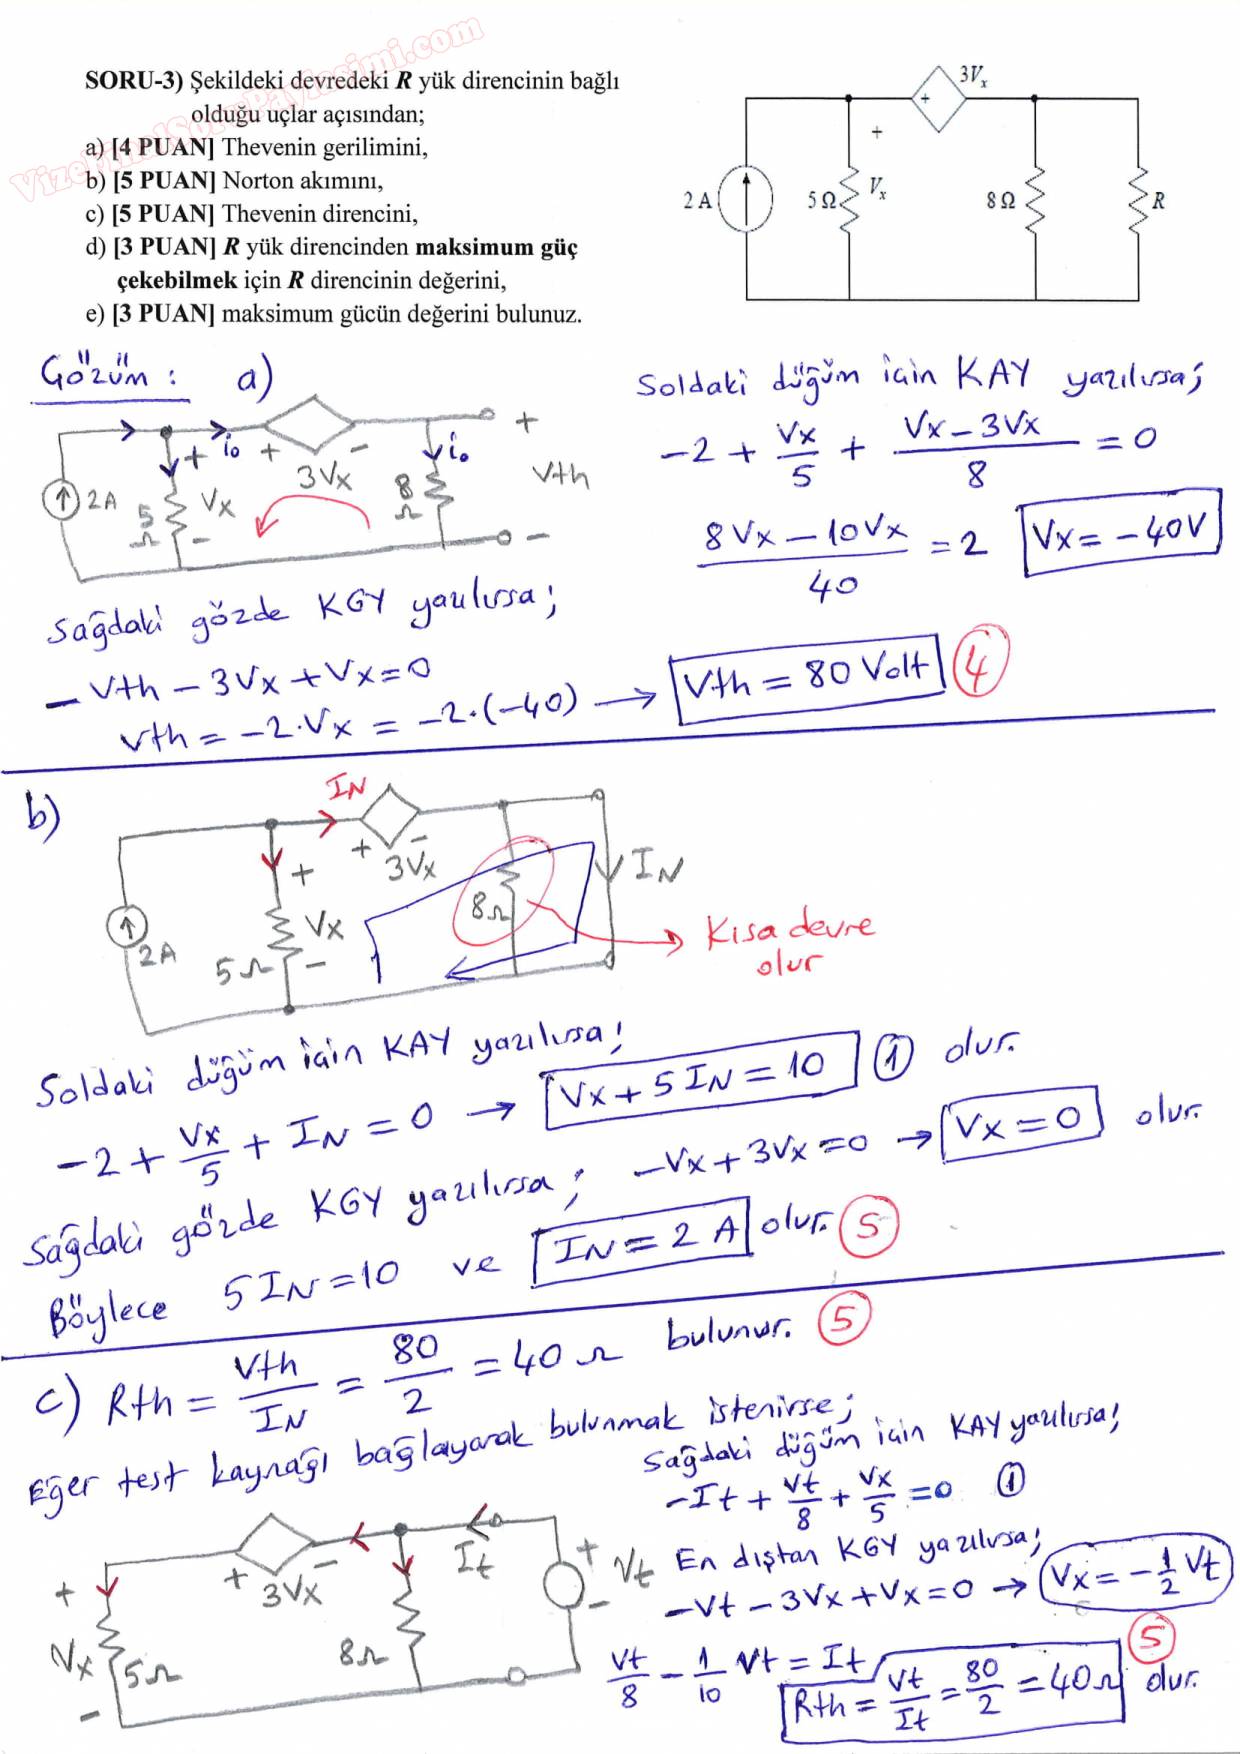 VizeFinalSoruPaylasimi.com
SORU-3) Şekildeki devredeki R yük direncinin bağlı
olduğu uçlar açısından;
a) [4 PUAN] Thevenin gerilimini,
b) [5 PUAN] Norton akımını,
c) [5 PUAN] Thevenin direncini,
d) [3 PUAN] R yük direncinden maksimum güç
çekebilmek için R direncinin değerini,
e) [3 PUAN] maksimum gücün değerini bulunuz.
3Vx
+
+
2 A
5 Ω
Vx
8 Ω
R
Çözüm : a)
i₀ + 3Vx -
i₀
+
Vth
-
2A
+
5 Ω
Vx
-
8 Ω
Soldaki düğüm için KAY yazılırsa;
-2 + Vx/5 + (Vx - 3Vx)/8 = 0
(8Vx - 10Vx)/40 = 2 Vx = -40V
Sağdaki gözde KGY yazılırsa;
-Vth - 3Vx + Vx = 0
Vth = -2.Vx = -2.(-40) → Vth = 80 Volt 4
b)
IN
+ 3Vx -
2A
+
Vx
5 Ω
-
8 Ω
IN
Kısa devre
olur
Soldaki düğüm için KAY yazılırsa;
-2 + Vx/5 + IN = 0 → Vx + 5IN = 10 1 olur.
Sağdaki gözde KGY yazılırsa; -Vx + 3Vx = 0 → Vx = 0 olur.
Böylece 5IN = 10 ve IN = 2 A olur. 5
c) Rth = Vth/IN = 80/2 = 40 Ω bulunur. 5
Eğer test kaynağı bağlayarak bulunmak istenirse;
Sağdaki düğüm için KAY yazılırsa;
-It + Vt/8 + Vx/5 = 0 1
En dıştan KGY yazılırsa;
-Vt - 3Vx + Vx = 0 → Vx = -1/2 Vt
Vt/8 - 1/10 Vt = It
Rth = Vt/It = 80/2 = 40 Ω olur. 5
+ 3Vx -
It
+
Vt
-
+
Vx
5 Ω
-
8 Ω